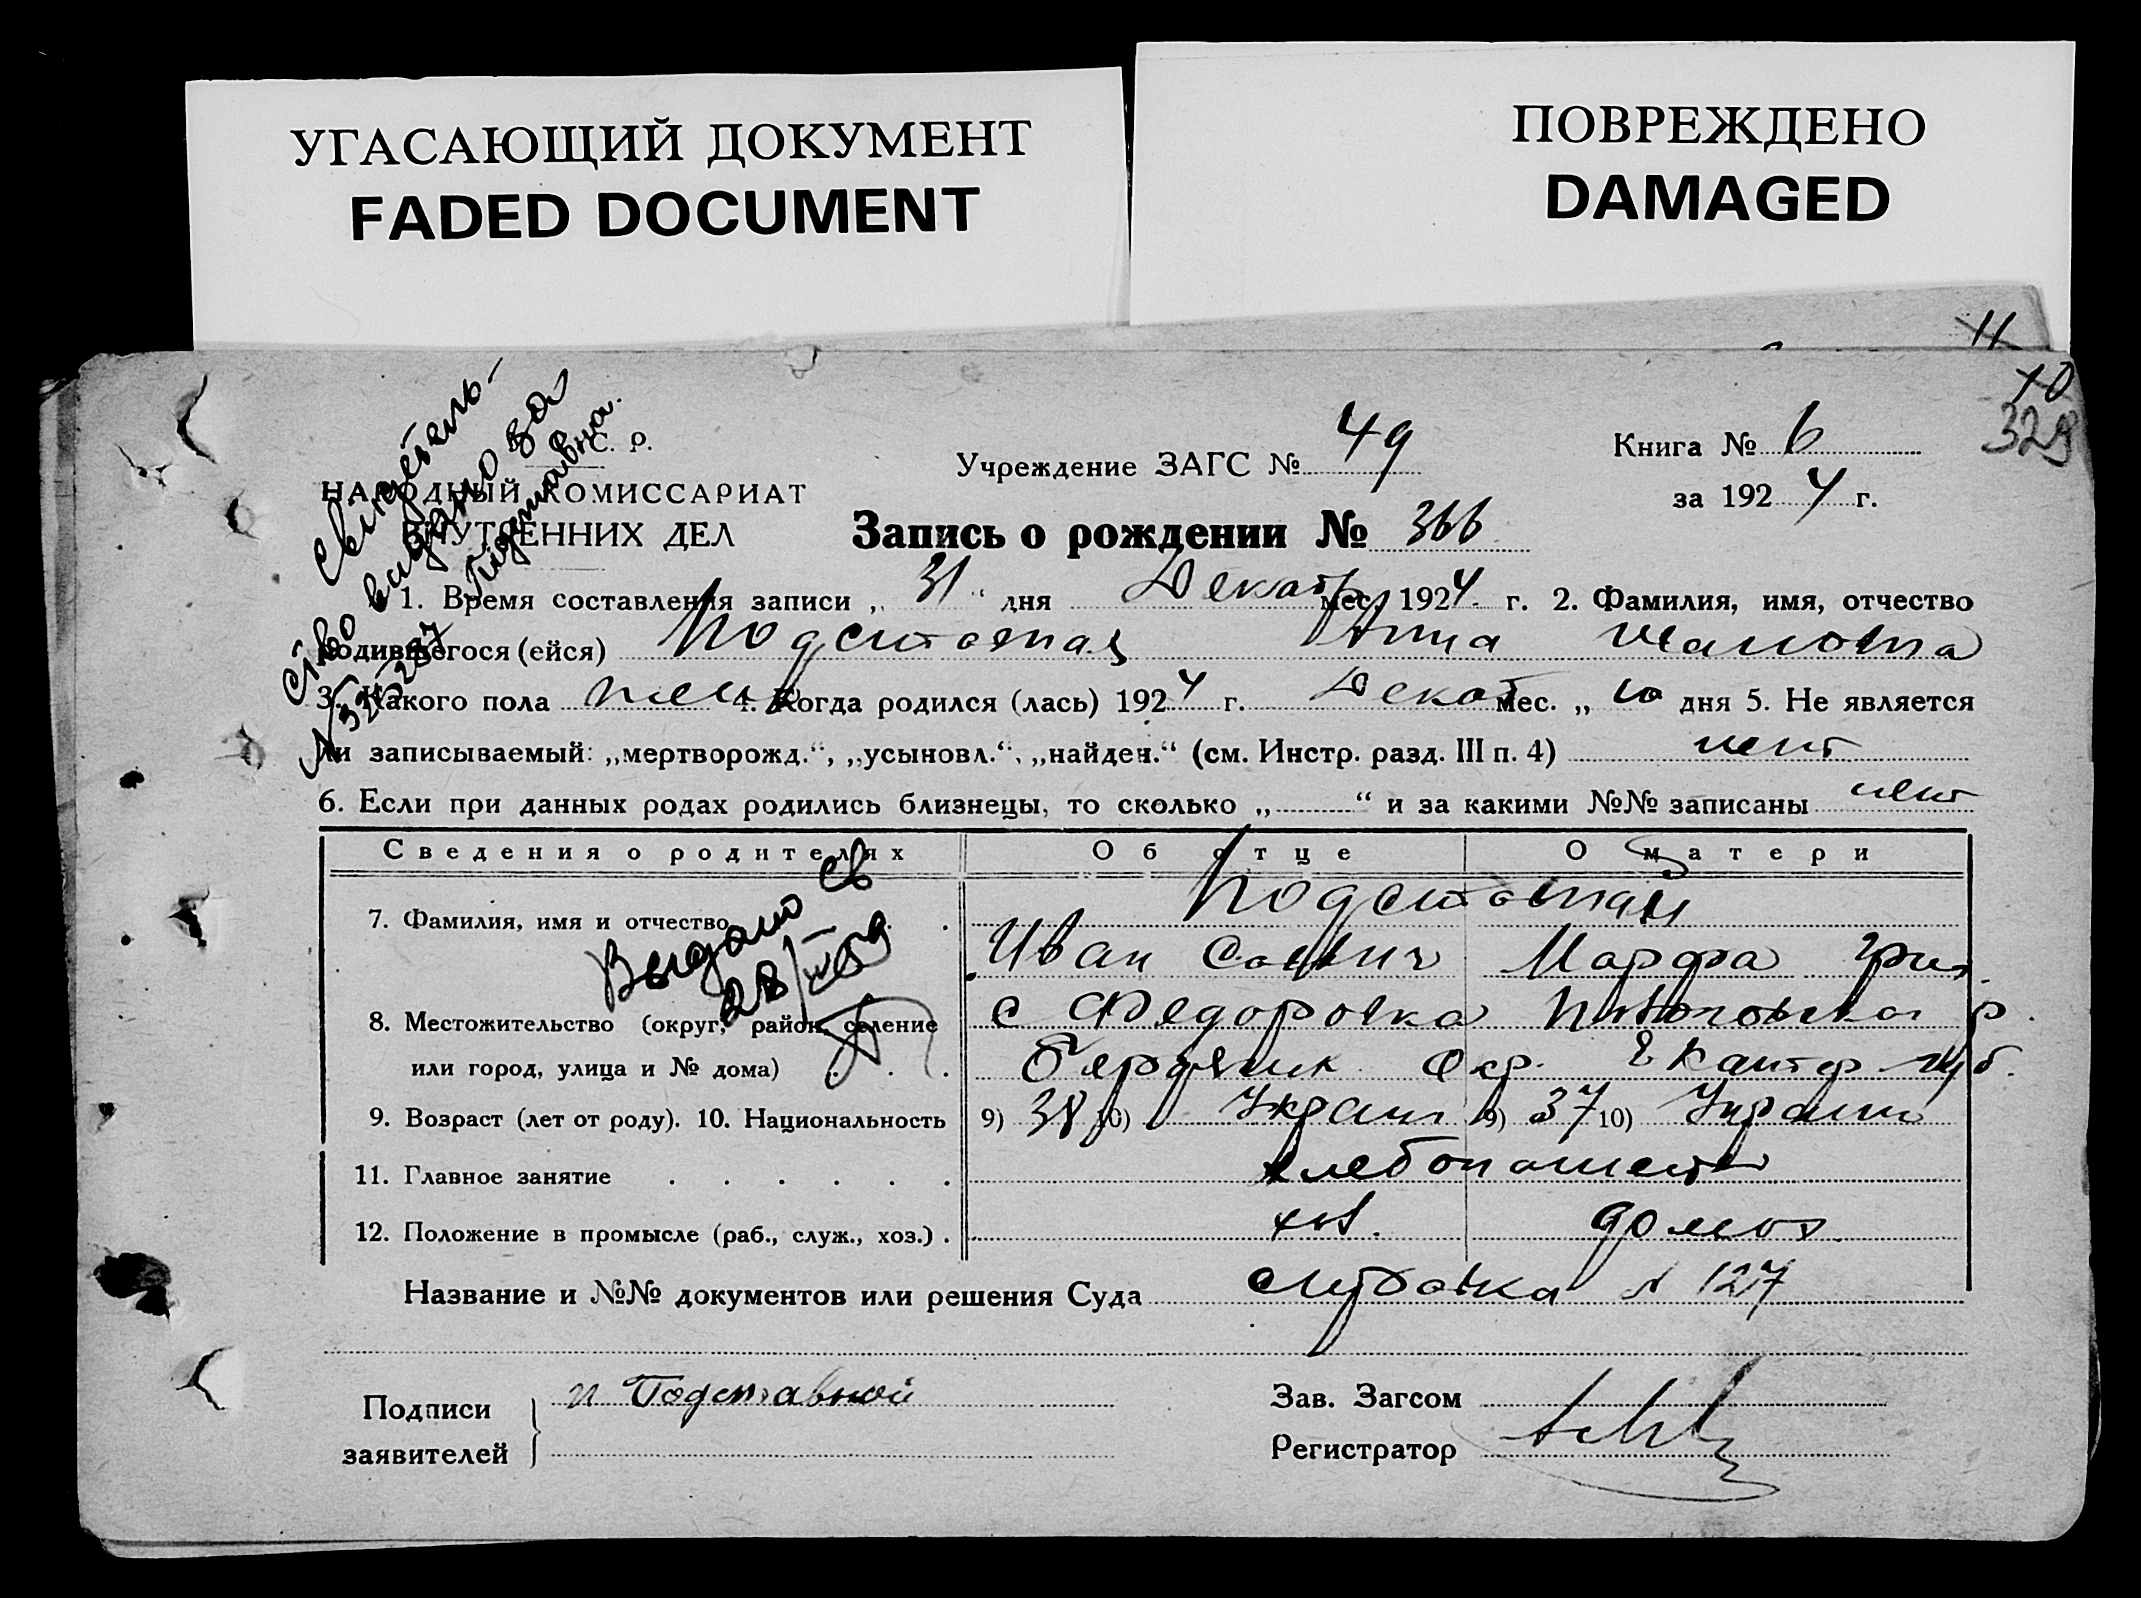 УГАСАЮЩИЙ ДОКУМЕНТ
FADED DOCUMENT
ПОВРЕЖДЕНО
DAMAGED
11
10
329
С. Р.
НАРОДНЫЙ КОМИССАРИАТ
ВНУТРЕННИХ ДЕЛ
Учреждение ЗАГС № 49
Книга № 6
за 1924 г.
Запись о рождении № 366
Свидетель-
ство видано за
Підставна.
1. Время составления записи „ 31 “ дня Декаб мес. 1924 г. 2. Фамилия, имя, отчество
родившегося (ейся) Подставная Анна Ивановна
3. Какого пола жен 4. Когда родился (лась) 1924 г. Декаб мес. „ 10 дня 5. Не является
ли записываемый: „мертворожд.“, „усыновл.“, „найден.“ (см. Инстр. разд. III п. 4) нет
6. Если при данных родах родились близнецы, то сколько „ “ и за какими №№ записаны нет
Сведения о родителях Об отце О матери
Выдано св
28/
7. Фамилия, имя и отчество Подставный
Иван Савич Марфа Григ.
8. Местожительство (округ, район, селение с Федоровка р.
или город, улица и № дома) Бердянск Окр. Екатер губ.
9. Возраст (лет от роду). 10. Национальность 9) 38 10) Украин 9) 37 10) Украин
11. Главное занятие хлебопашество
12. Положение в промысле (раб., служ., хоз.) хоз. домох.
Название и №№ документов или решения Суда справка № 127
Подписи
заявителей
и Подставной
Зав. Загсом
Регистратор